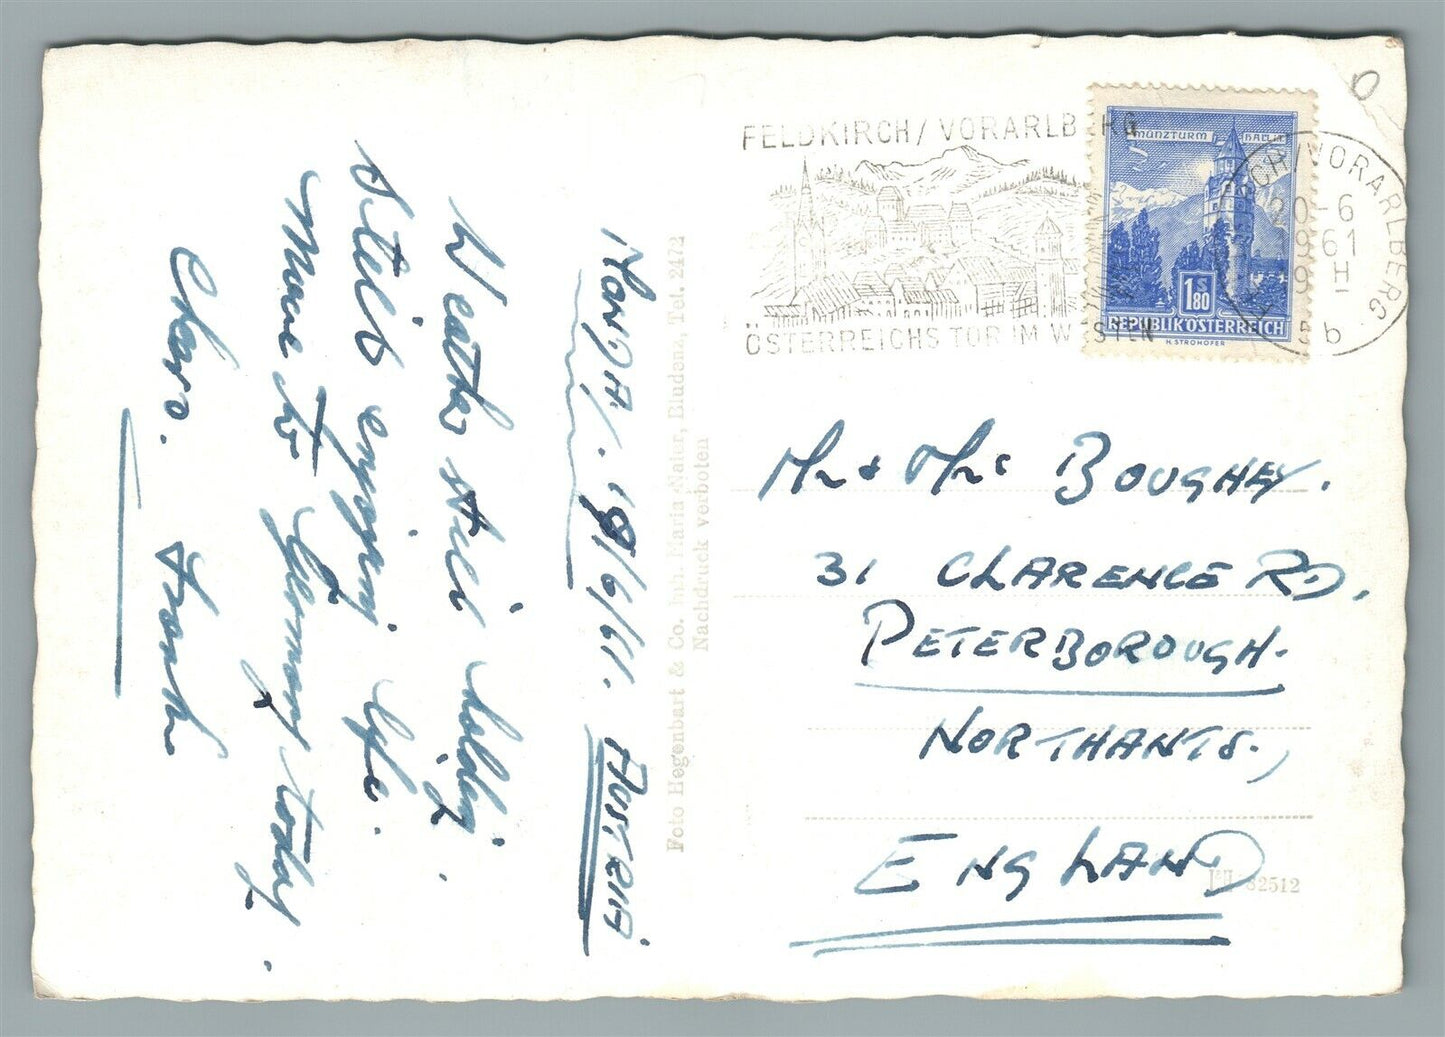 Monday. 19/6/61. AUSTRIA
Weather still holding.
Still enjoying life.
Move to Germany today.
Cheers. Frank
Foto Hegenbart & Co. Inh. Maria Nater, Bludenz, Tel. 2472
Nachdruck verboten
FELDKIRCH/VORARLBERG
ÖSTERREICHS TOR IM WESTEN
MÜNZTURM HALL
S
1.80
REPUBLIK ÖSTERREICH
H. STROHOFER
CH/VORARLBERG
20-6
1961
9 H
5b
Mr & Mrs BOUGHEY.
31 CLARENCE RD,
PETERBOROUGH.
NORTHANTS.,
ENGLAND
82512